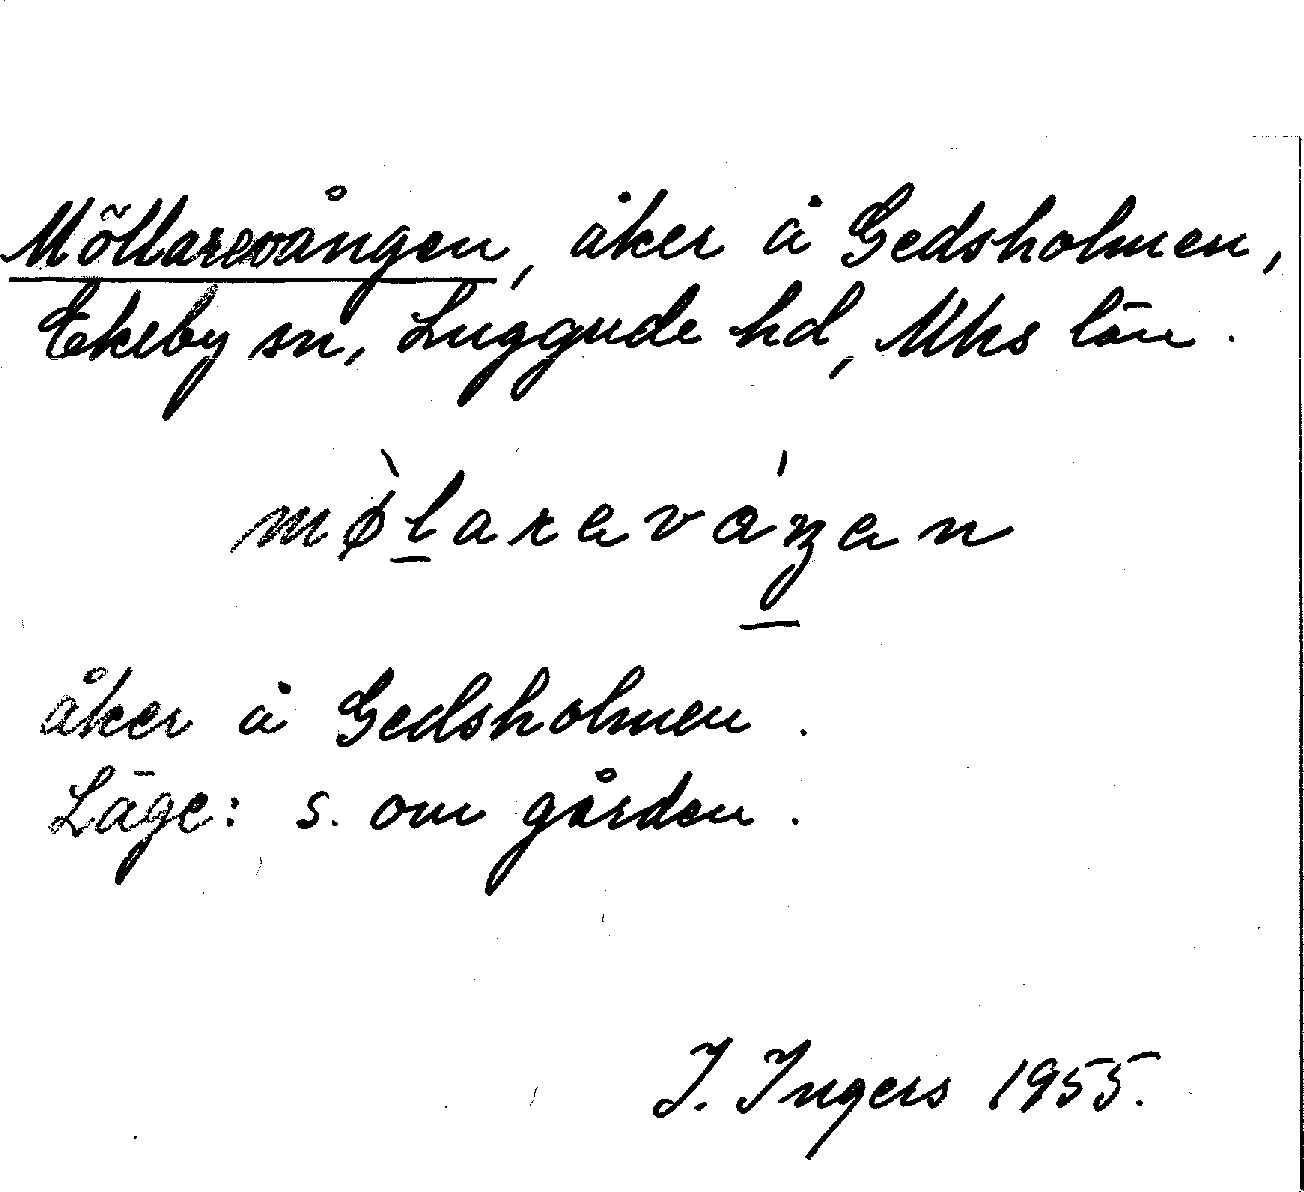 Möllarevången, åker å Gedsholmen,
Ekeby sn, Luggude hd, Mhs län.
mø̀l̲areváŋ̲en
åker å Gedsholmen.
Läge: s. om gården.
I. Ingers 1955.